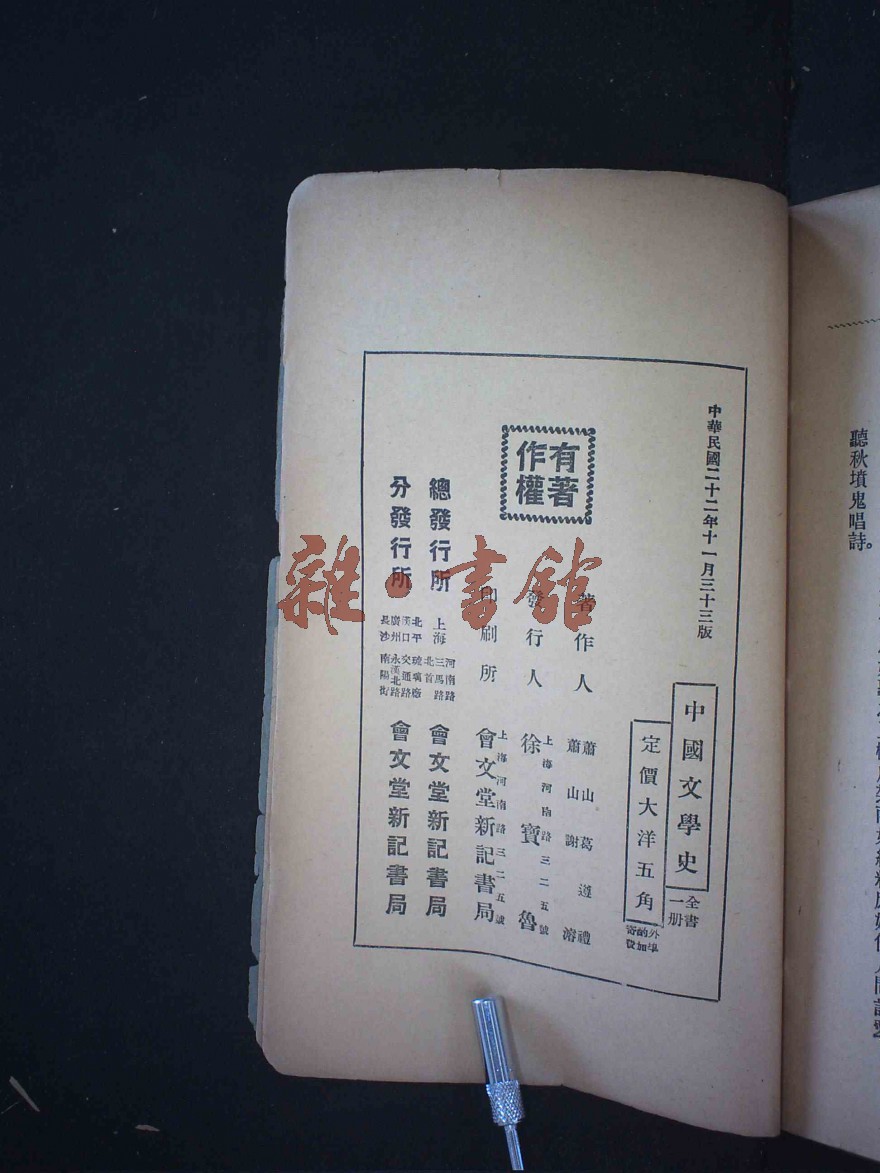 聽秋墳鬼唱詩。
中華民國二十二年十一月三十三版
中國文學史
全書一册
定價大洋五角
外埠酌加寄費
有著作權
著作人
蕭山葛遵禮
蕭山謝 溶
發行人
上海河南路三二五號
徐寶魯
印刷所
上海河南路三二五號
會文堂新記書局
總發行所
上海
河南路
三馬路
北首
會文堂新記書局
分發行所
北平 琉璃廠
漢口 交通路
廣州 永漢北路
長沙 南陽街
會文堂新記書局
雜·書館